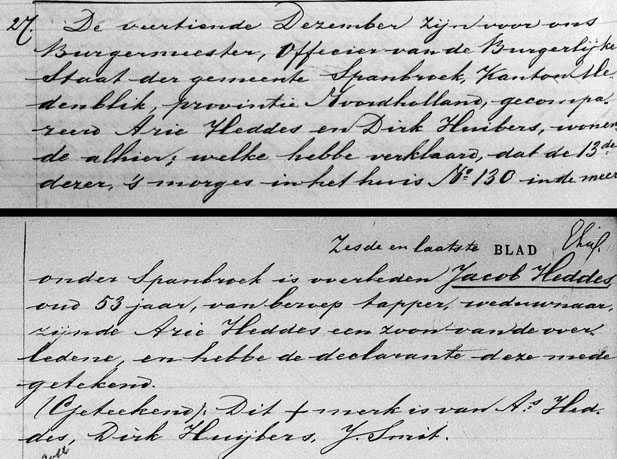 27. De veertiende Dezember zijn voor ons
Burgermeester, Officier van de Burgerlijke
Staat der gemeente Spanbroek, Kanton Me-
denblik, provintie Noordholland, gecompa-
reerd Arie Heddes en Dirk Huibers, wonen-
de alhier; welke hebbe verklaard, dat de 13de
dezer, 's morges in het huis No. 130 in de meer
Zesde en laatste BLAD
onder Spanbroek is overleden Jacob Heddes,
oud 53 jaar, van beroep tapper, weduwnaar,
zijnde Arie Heddes een zoon van de over-
ledene, en hebbe de declarante deze mede
getekend.
(Geteekend): Dit + merk is van As Hed-
des, Dirk Huijbers, J. Smit.